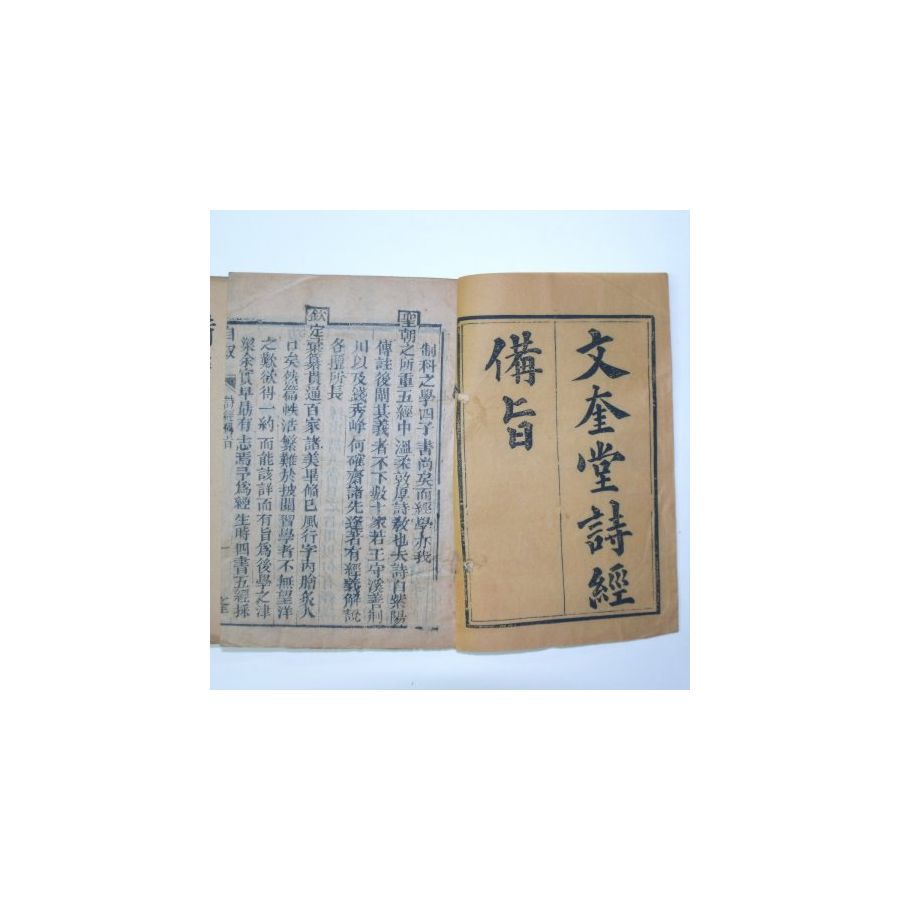 文奎堂詩經
備旨
制科之學四子書尚矣而經學亦我
聖朝之所重五經中溫柔敦厚詩教也夫詩自紫陽
傳註後闡其義者不下數十家若王守溪荆
川以及錢秀峰何確齋諸先達著有經義解說
各擅所長
欽定彙纂貫通百家諸美畢偹已風行宇內膾炙人
口矣然篇帙浩繁難於披閱習學者不無望洋
之歎欲得一約而能該詳而有旨為後學之津
梁余實早勗有志焉予為經生時四書五經採
自叙